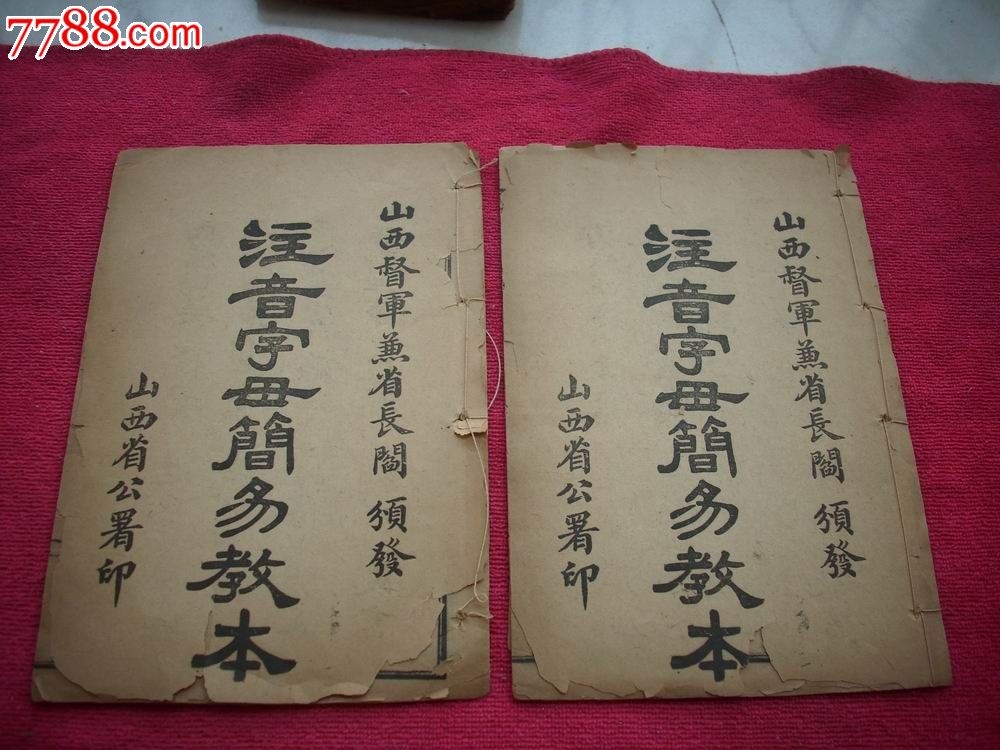 7788.com
山西督軍兼省長閻 頒發
注音字母簡易教本
山西省公署印
山西督軍兼省長閻 頒發
注音字母簡易教本
山西省公署印